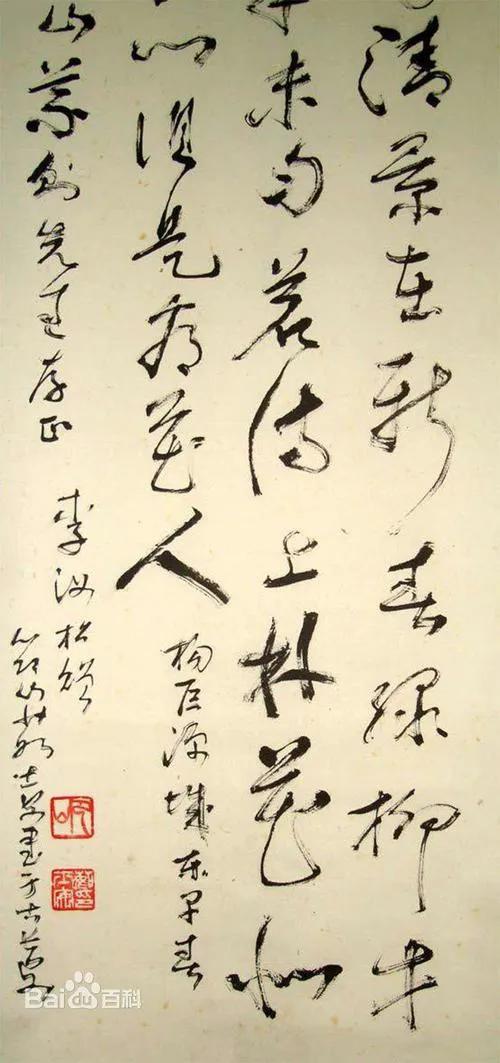 清景在新春绿柳才
半未匀若待上林花似
门俱是看花人
杨巨源城东早春
山 先生存正
李汝松赠
书于古
Bai百科